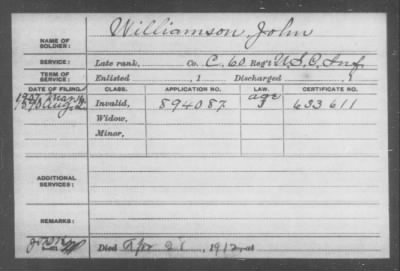 NAME OF SOLDIER: Williamson, John
SERVICE: Late rank, Co. C, 60 Reg't U.S.C. Inf.
TERM OF SERVICE: Enlisted , 1 Discharged , 1
DATE OF FILING. CLASS. APPLICATION NO. LAW. CERTIFICATE NO.
1907 Mar. age
1890 Aug. 2 Invalid, 894087 J 633611
Widow,
Minor,
ADDITIONAL SERVICES:
REMARKS:
Died Apr 28 1912, at